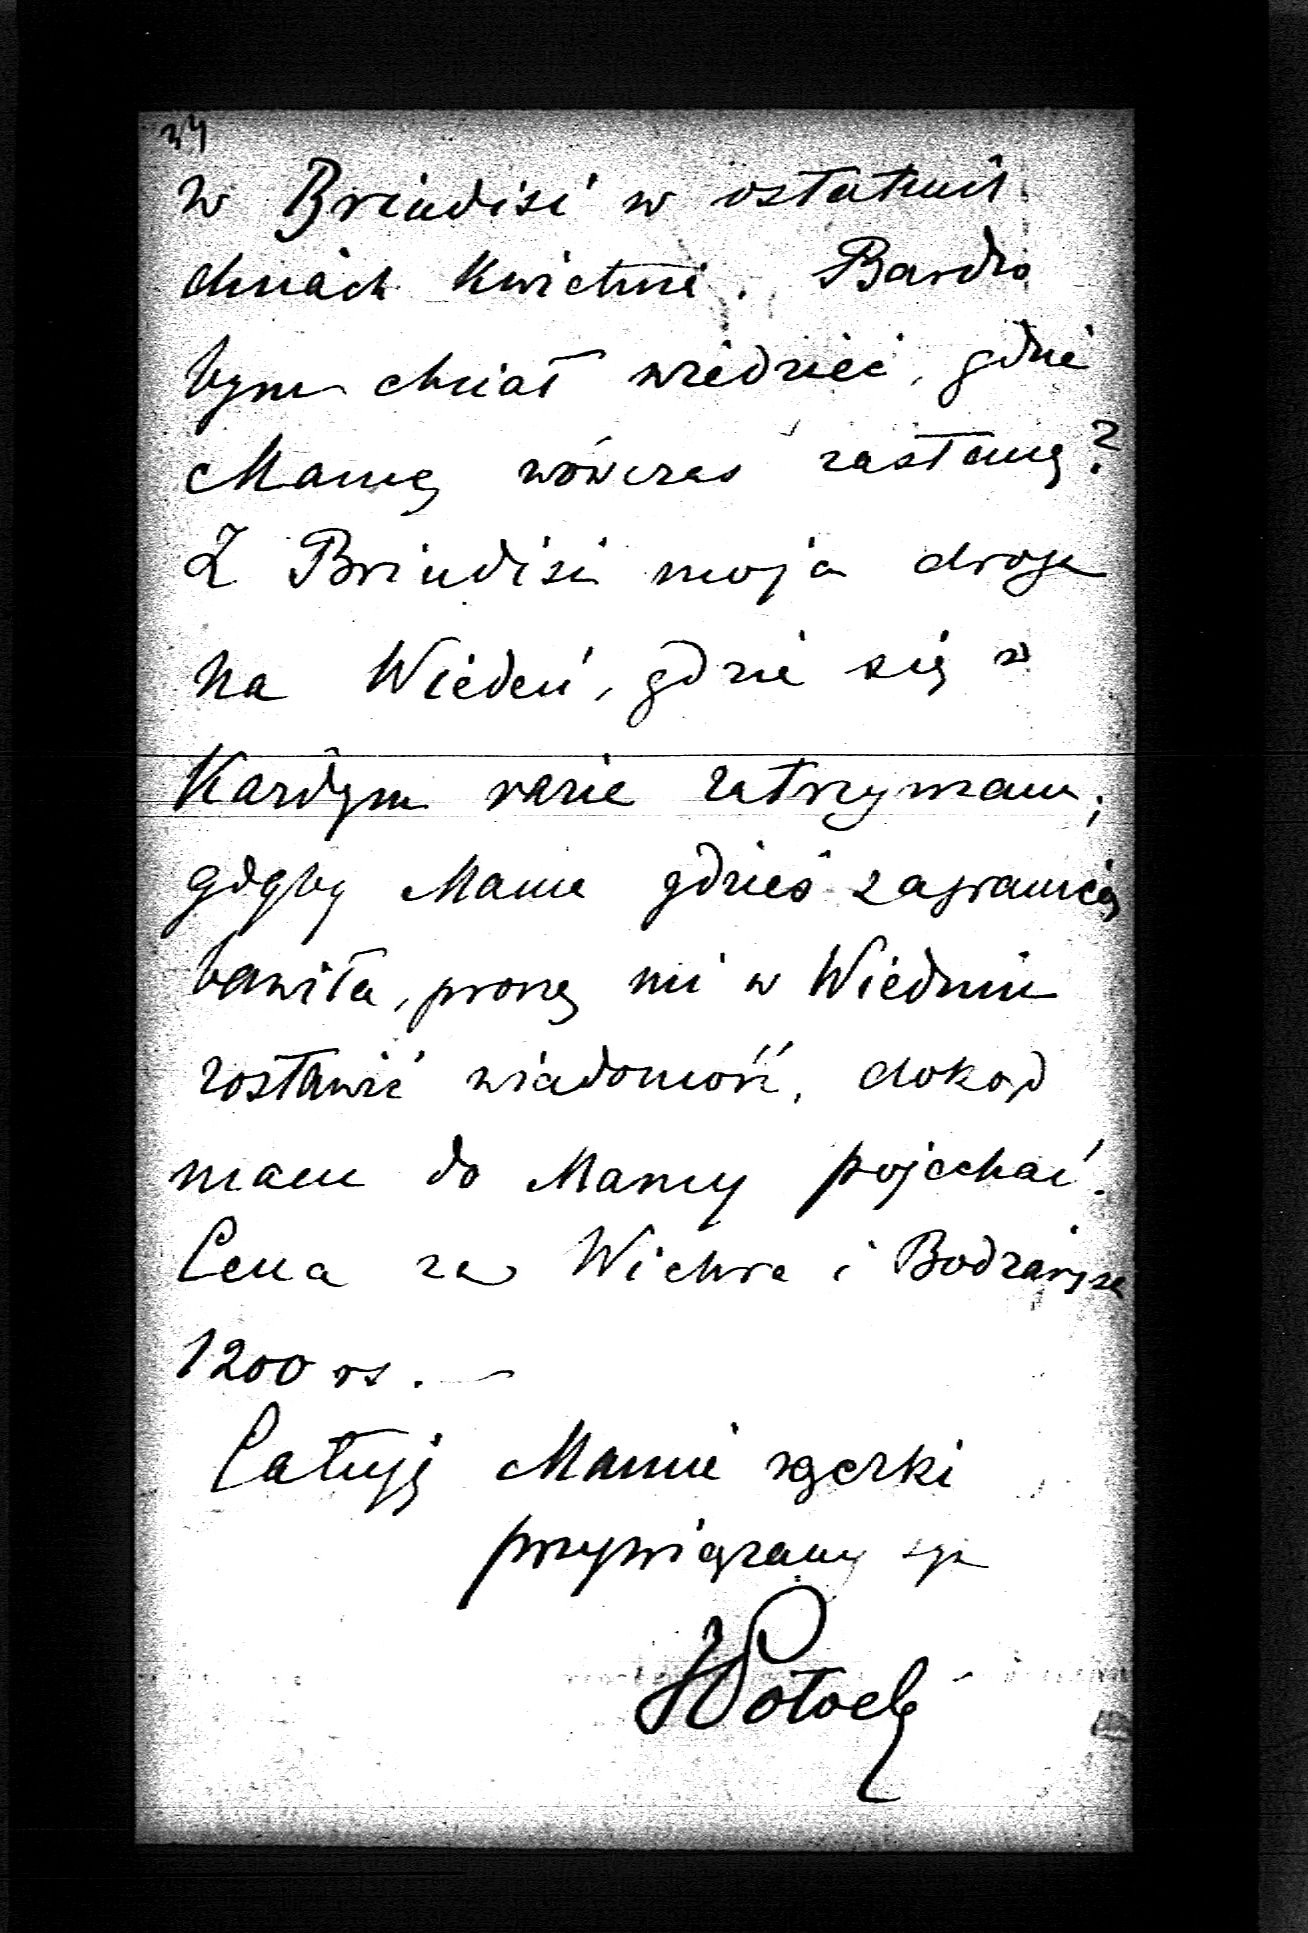 34
w Brindisi w ostatnich
dniach Kwietnia. Bardzo
bym chciał wiedzieć, gdzie
Mamę wówczas zastanę?
Z Brindisi moja droga
na Wiedeń, gdzie się w
Każdym razie zatrzymam;
gdyby Mama gdzieś zagranicą
bawiła, proszę mi w Wiedniu
zostawić wiadomość, dokąd
mam do Mamy pojechać.
Cena za Wichra i Bodzarysa
1200 rs. —
Całuję Mamie rączki
przywiązany syn
Potocki